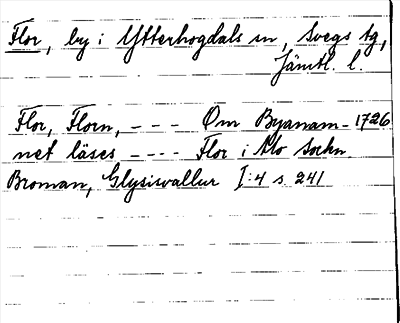 Flor, by i Ytterhogdals sn, Svegs tg,
Jämtl. l.
Flor, Florn, --- Om Byanam- 1726
net läses ---- Flor i Alo Sockn
Broman, Glysisvallur I:4 s. 241